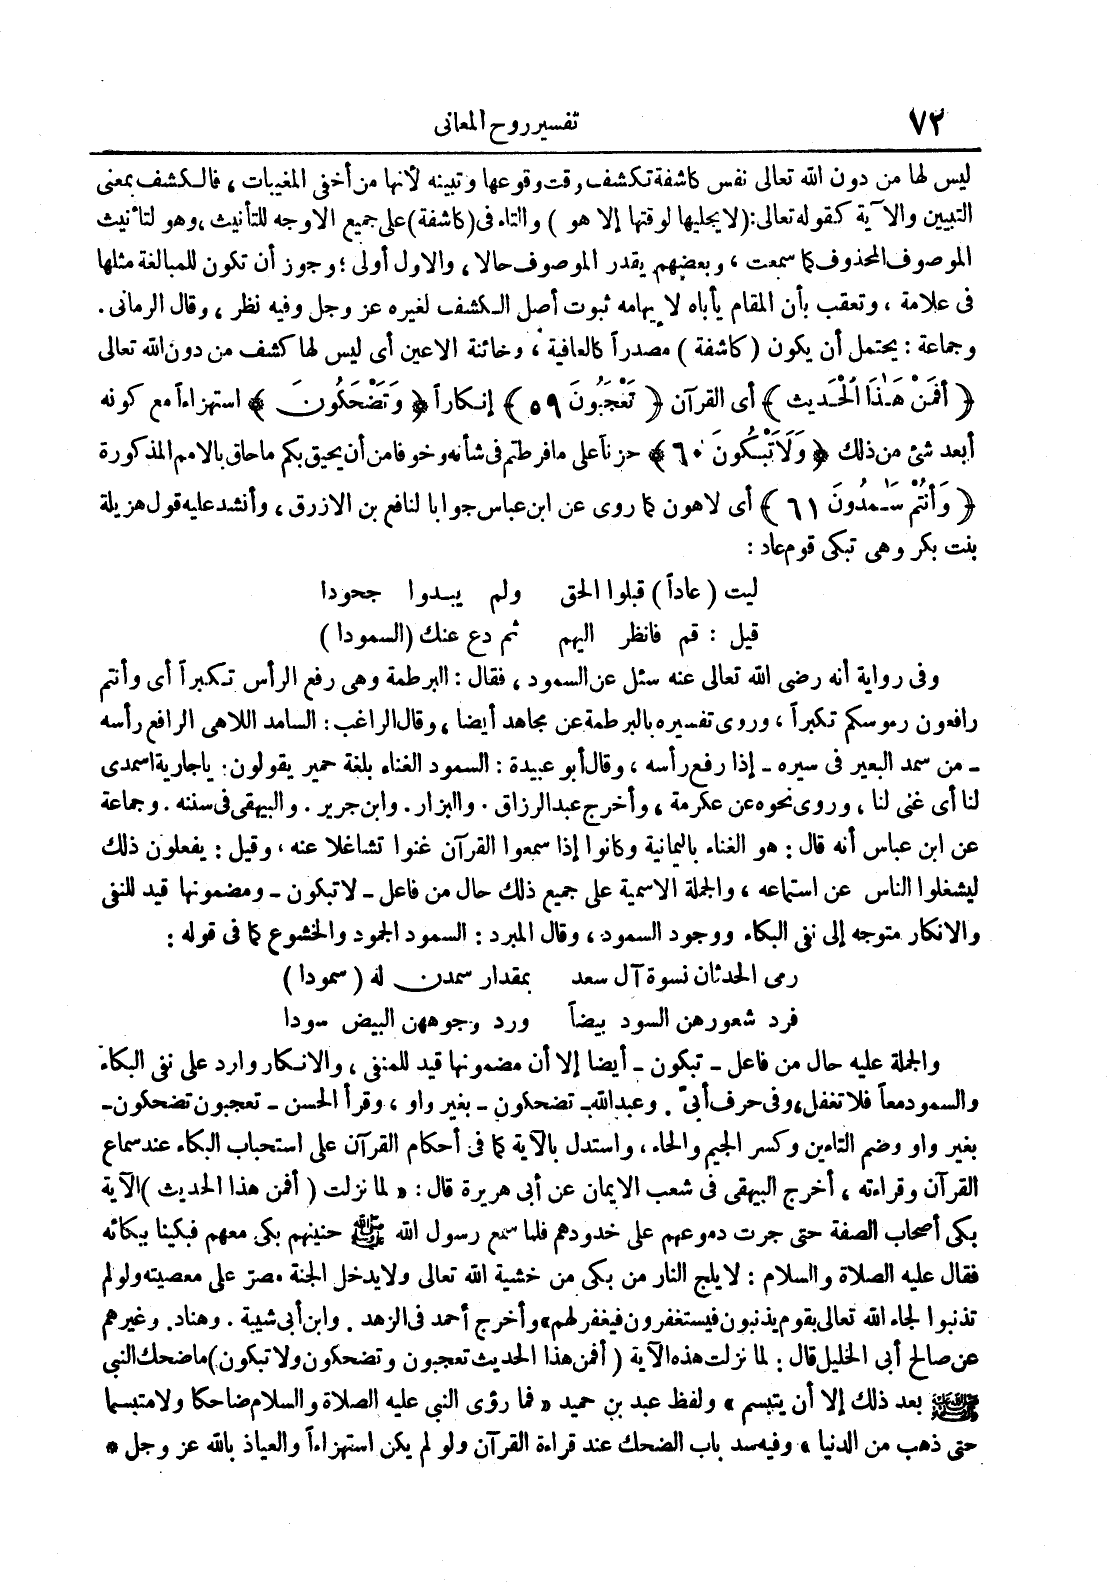 ٧٢
تفسير روح المعانى
ليس لها من دون الله تعالى نفس كاشفة تكشف وقت وقوعها وتبينه لأنها من أخفى المغيبات ، فالكشف بمعنى
التبيين والآية كقوله تعالى:(لا يجليها لوقتها إلا هو ) والتاء فى(كاشفة)على جميع الاوجه للتأنيث ،وهو لتأنيث
الموصوف المحذوف كما سمعت ، وبعضهم يقدر الموصوف حالا ، والاول أولى ؛ وجوز أن تكون للمبالغة مثلها
فى علامة ، وتعقب بأن المقام يأباه لايهامه ثبوت أصل الكشف لغيره عز وجل وفيه نظر ، وقال الرمانى .
وجماعة : يحتمل أن يكون (كاشفة ) مصدراً كالعافية ، وخائنة الاعين أى ليس لها كشف من دون الله تعالى
﴿ أَفَمِنْ هَـٰذَا الْحَـدِيث ﴾ أى القرآن ﴿ تَعْجَبُونَ ٥٩ ﴾ إنكاراً ﴿ وَتَضْحَكُونَ ﴾ استهزاءاً مع كونه
أبعد شئ من ذلك ﴿ وَلَا تَبْكُونَ ٦٠ ﴾ حزناً على مافرطتم فى شأنه وخوفا من أن يحيق بكم ماحاق بالامم المذكورة
﴿ وَأَنتُمْ سَـٰمِدُونَ ٦١ ﴾ أى لاهون كما روى عن ابن عباس جوابا لنافع بن الازرق ، وأنشد عليه قول هزيلة
بنت بكر وهى تبكى قوم عاد :
ليت ( عاداً ) قبلوا الحق ولم يبـدوا جحودا
قيل : قم فانظر اليهم ثم دع عنك (السمودا )
وفى رواية أنه رضى الله تعالى عنه سئل عن السمود ، فقال : البرطمة وهى رفع الرأس تكبراً أى وأنتم
رافعون رءوسكم تكبراً ، وروى تفسيره بالبرطمة عن مجاهد أيضا ، وقال الراغب : السامد اللاهى الرافع رأسه
ـ من سمد البعير فى سيره ـ إذا رفع رأسه ، وقال أبو عبيدة : السمود الغناء بلغة حمير يقولون: ياجارية اسمدى
لنا أى غنى لنا ، وروى نحوه عن عكرمة ، وأخرج عبدالرزاق . والبزار . وابن جرير . والبيهقى فى سننه . وجماعة
عن ابن عباس أنه قال : هو الغناء باليمانية وكانوا إذا سمعوا القرآن غنوا تشاغلا عنه ، وقيل : يفعلون ذلك
ليشغلوا الناس عن استماعه ، والجملة الاسمية على جميع ذلك حال من فاعل ـ لاتبكون ـ ومضمونها قيد للنفى
والانكار متوجه إلى نفى البكاء ووجود السمود ، وقال المبرد : السمود الجمود والخشوع كما فى قوله :
رمى الحدثان نسوة آل سعد بمقدار سمدن له ( سمودا )
فرد شعورهن السود بيضاً ورد وجوههن البيض سودا
والجملة عليه حال من فاعل ـ تبكون ـ أيضا إلا أن مضمونها قيد للمنفى ، والانكار وارد على نفى البكاء
والسمود معاً فلا تغفل،وفى حرف أبىّ . وعبدالله ـ تضحكون ـ بغير واو ، وقرأ الحسن ـ تعجبون تضحكون ـ
بغير واو وضم التاءين وكسر الجيم والحاء ، واستدل بالآية كما فى أحكام القرآن على استحباب البكاء عند سماع
القرآن وقراءته ، أخرج البيهقى فى شعب الايمان عن أبى هريرة قال : « لما نزلت ( أفمن هذا الحديث )الآية
بكى أصحاب الصفة حتى جرت دموعهم على خدودهم فلما سمع رسول الله ﷺ حنينهم بكى معهم فبكينا ببكائه
فقال عليه الصلاة والسلام : لايلج النار من بكى من خشية الله تعالى ولايدخل الجنة مصرّ على معصيته ولو لم
تذنبوا لجاء الله تعالى بقوم يذنبون فيستغفرون فيغفر لهم» وأخرج أحمد فى الزهد . وابن أبى شيبة . وهناد . وغيرهم
عن صالح أبى الخليل قال : لما نزلت هذه الآية ( أفمن هذا الحديث تعجبون وتضحكون ولا تبكون)ماضحك النبى
ﷺ بعد ذلك إلا أن يتبسم » ولفظ عبد بن حميد « فما رؤى النبى عليه الصلاة والسلام ضاحكا ولا متبسما
حتى ذهب من الدنيا » وفيه سد باب الضحك عند قراءة القرآن ولو لم يكن استهزاءاً والعياذ بالله عز وجل *